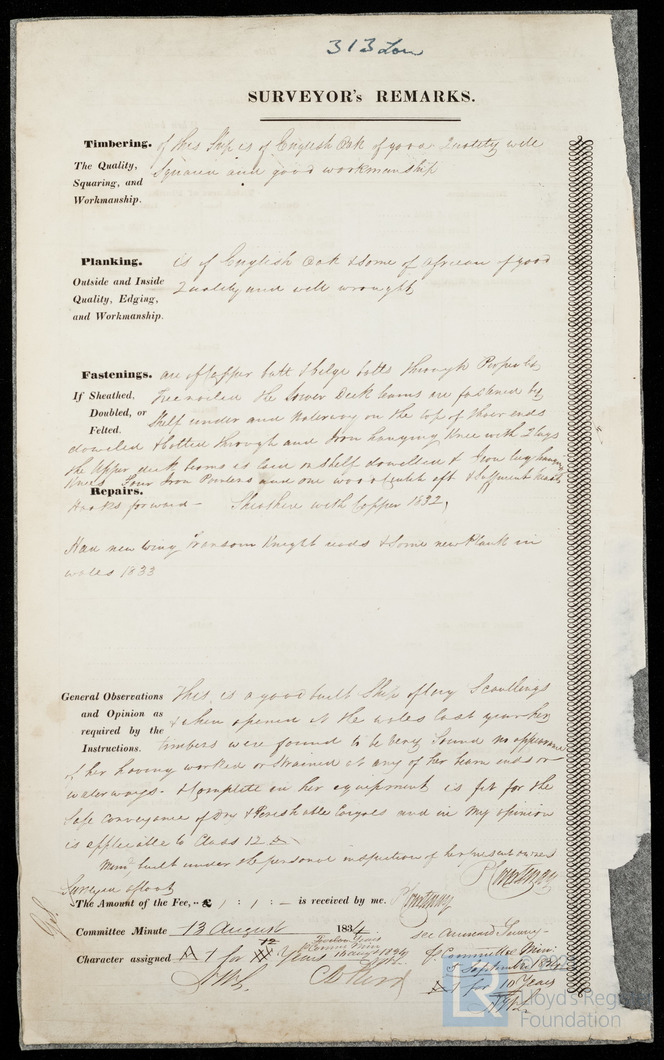 313 Lon
SURVEYOR's REMARKS.
Timbering. of this Ship is of English Oak of good Quality well
The Quality, Squaring, and Workmanship.
Squared and good workmanship
Planking. is of English Oak & Some of African of good
Outside and Inside Quality, Edging, and Workmanship.
Quality and well wrought
Fastenings. are of Copper butt & bilge bolts through Properly
If Sheathed, Doubled, or Felted.
Treenailed the Lower Deck beams are fastened by
Shelf under and Waterway on the top of their ends
dowelled & bolted through and Iron hanging Knee with 2 lugs
the Upper deck beams is laid on shelf dowelled & Iron lug hanging
Knees Four Iron Pointers and one wood aft & Sufficient
Hooks forward — Sheathed with Copper 1832,
Repairs.
Had new wing Transom Knight heads & Some new Plank in
wales 1833
General Observations and Opinion as required by the Instructions.
This is a good built Ship of Scantlings
& when opened at the wales last year her
timbers were found to be very Sound no appearance
of her having worked or strained at any of her beam ends or
waterways. & Complete in her equipment is fit for the
Safe conveyance of Dry & Perishable Cargoes and in my opinion
is applicable to Class 12 A
Mem, built under the personal inspection of her present owners
Surveyed afloat
The Amount of the Fee, £ 1 : 1 : — is received by me.
Committee Minute 13 August 1834
see annexed Survey
Character assigned A 1 for 12 Years
Twelve Years
& Committee Min:
5 September 1834
A 1 for 10 Years
LR
Lloyd's Register
Foundation